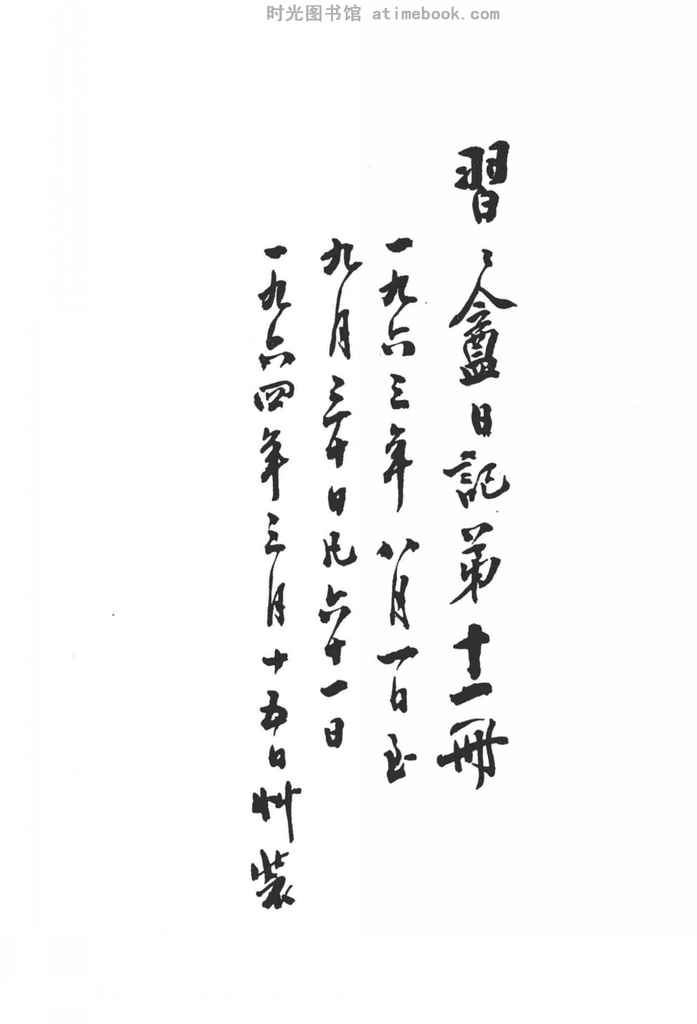 时光图书馆 atimebook.com
習〻盦日記第十一冊
一九六三年八月一日至
九月三十日凡六十一日
一九六四年三月十五日艸裝